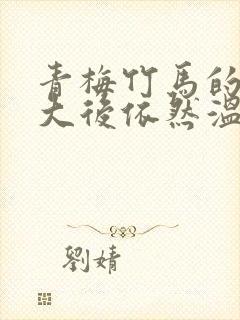 青梅竹馬的
大後依然溫
劉婧